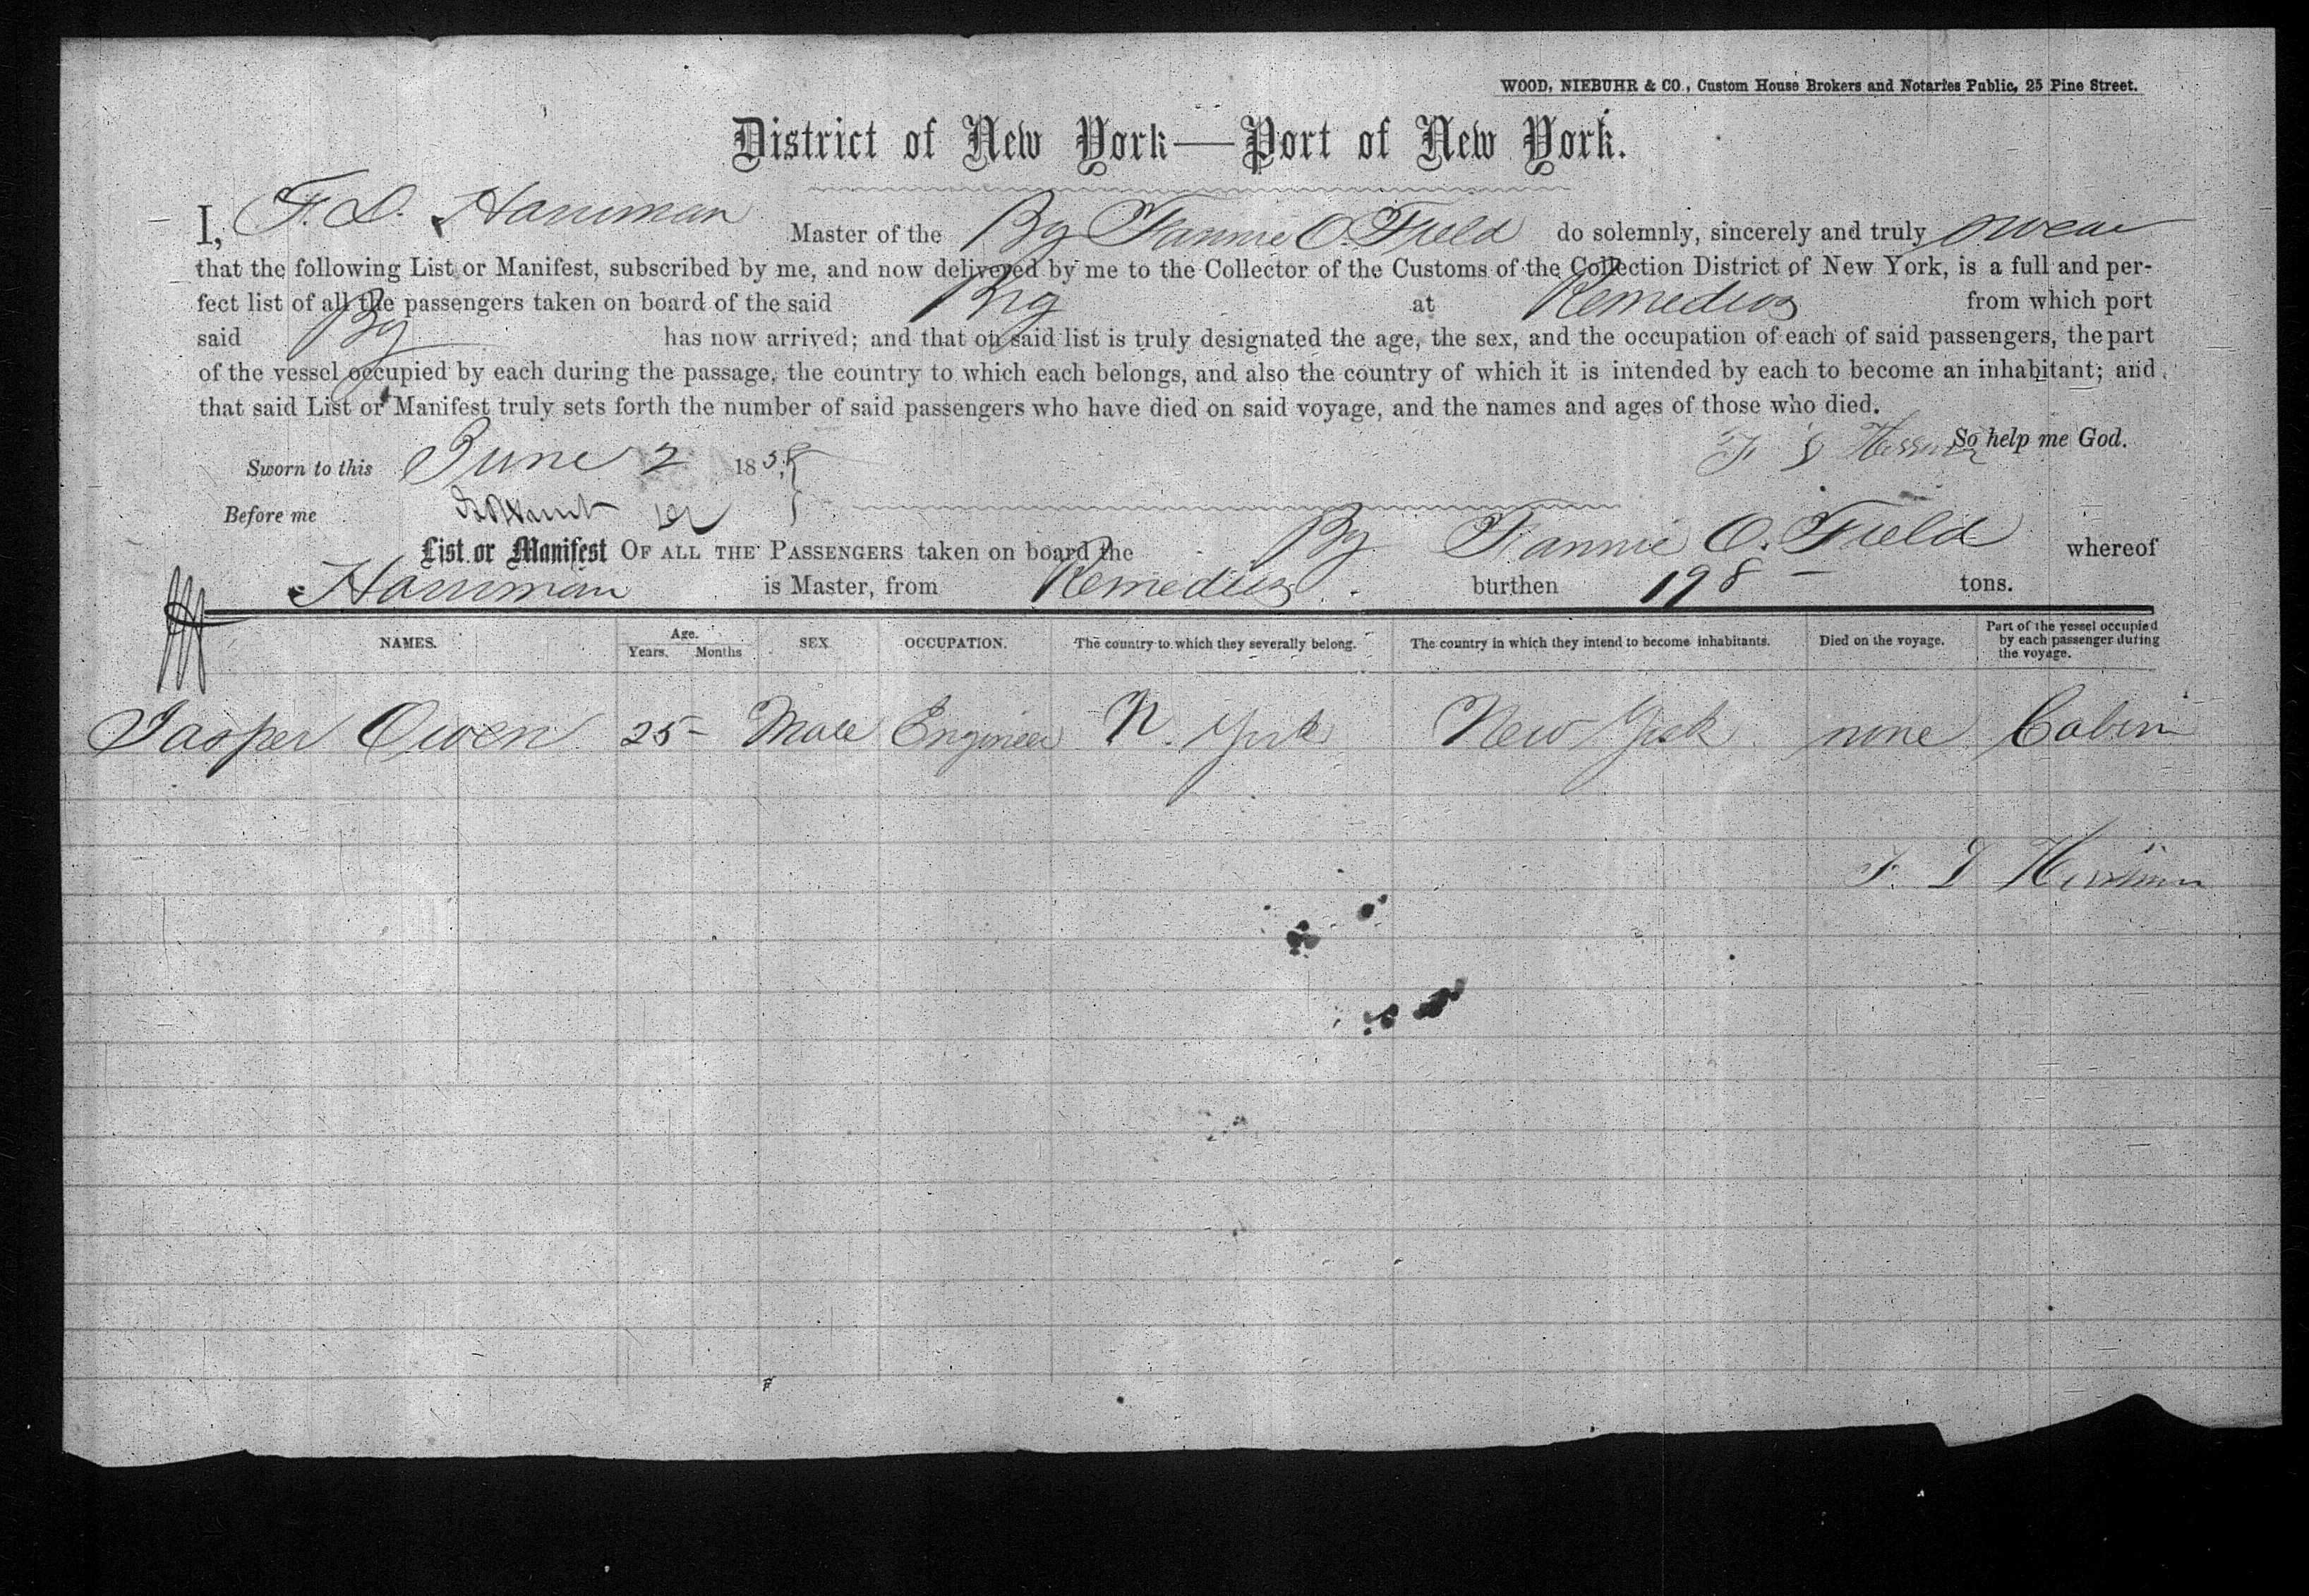 WOOD, NIEBUHR & CO., Custom House Brokers and Notaries Public, 25 Pine Street.
District of New York—Port of New York.
I, F. D. Harriman Master of the Bg Fannie O. Field do solemnly, sincerely and truly swear
that the following List or Manifest, subscribed by me, and now delivered by me to the Collector of the Customs of the Collection District of New York, is a full and per-
fect list of all the passengers taken on board of the said Brig at Remedios from which port
said Bg has now arrived; and that on said list is truly designated the age, the sex, and the occupation of each of said passengers, the part
of the vessel occupied by each during the passage, the country to which each belongs, and also the country of which it is intended by each to become an inhabitant; and
that said List or Manifest truly sets forth the number of said passengers who have died on said voyage, and the names and ages of those who died.
So help me God.
Sworn to this June 2 18
Before me
List or Manifest OF ALL THE PASSENGERS taken on board the Bg Fannie O. Field whereof
Harriman is Master, from Remedios burthen 198 — tons.
NAMES. Age. Years. Months SEX OCCUPATION. The country to which they severally belong. The country in which they intend to become inhabitants. Died on the voyage. Part of the vessel occupied by each passenger during the voyage.
Jasper Owen 25 – Male Engineer N. York New York none Cabin
F. D Harriman